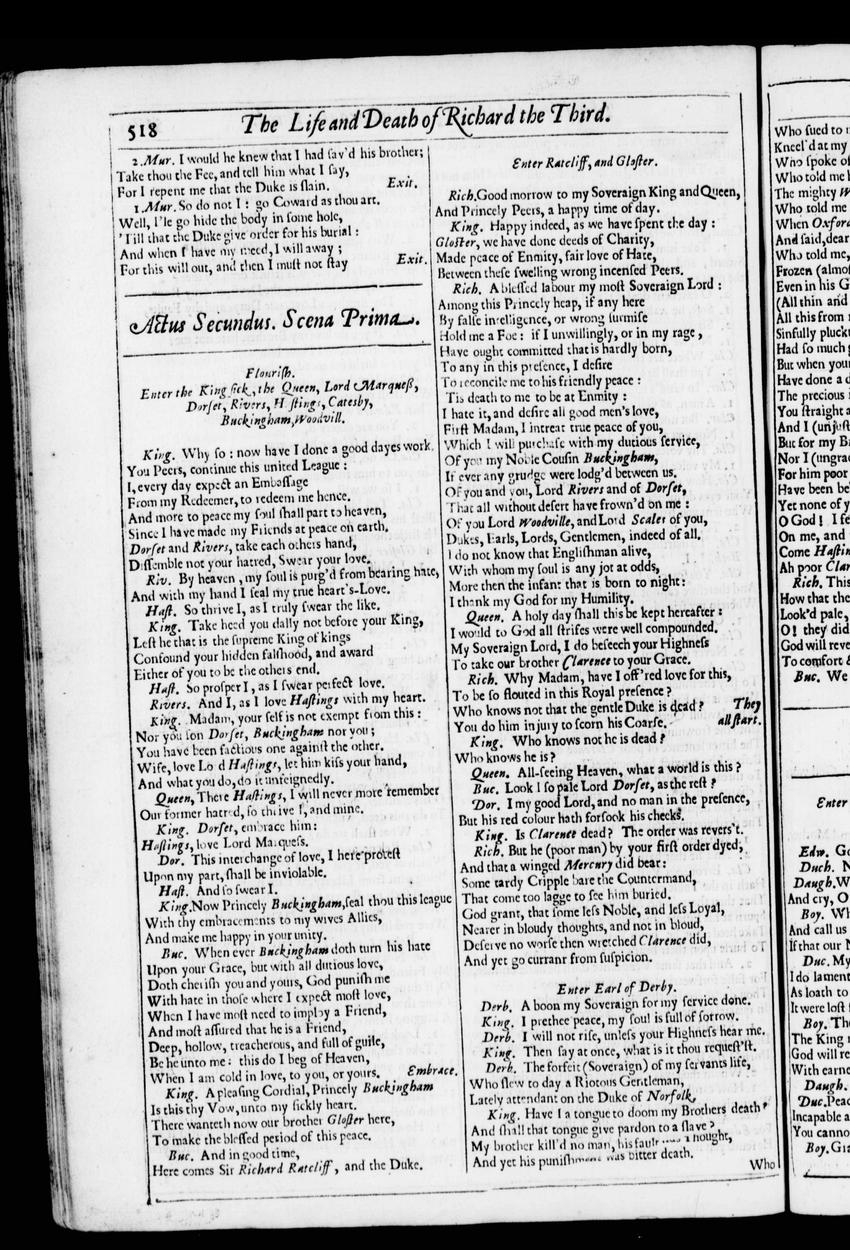 518
The Life and Death of Richard the Third.
2. Mur. I would he knew that I had ſav'd his brother;
Take thou the Fee, and tell him what I ſay,
For I repent me that the Duke is ſlain. Exit.
1. Mur. So do not I : go Coward as thou art.
Well, I'le go hide the body in ſome hole,
'Till that the Duke give order for his burial :
And when I have my meed, I will away ;
For this will out, and then I muſt not ſtay Exit.
Actus Secundus. Scena Prima.
Flouriſh.
Enter the King ſick, the Queen, Lord Marqueſs,
Dorſet, Rivers, H ſtings, Catesby,
Buckingham, Woodvill.
King. Why ſo : now have I done a good dayes work.
You Peers, continue this united League :
I, every day expect an Embaſſage
From my Redeemer, to redeem me hence.
And more to peace my ſoul ſhall part to heaven,
Since I have made my Friends at peace on earth.
Dorſet and Rivers, take each others hand,
Diſſemble not your hatred, Swear your love.
Riv. By heaven, my ſoul is purg'd from bearing hate,
And with my hand I ſeal my true heart's-Love.
Haſt. So thrive I, as I truly ſwear the like.
King. Take heed you dally not before your King,
Leſt he that is the ſupreme King of kings
Confound your hidden falſhood, and award
Either of you to be the others end.
Haſt. So proſper I, as I ſwear perfect love.
Rivers. And I, as I love Haſtings with my heart.
King. Madam, your ſelf is not exempt from this :
Nor you ſon Dorſet, Buckingham nor you ;
You have been factious one againſt the other.
Wife, love Lo d Haſtings, let him kiſs your hand,
And what you do, do it unfeignedly.
Queen, There Haſtings, I will never more remember
Our former hatred, ſo thrive I, and mine.
King. Dorſet, embrace him :
Haſtings, love Lord Marqueſs.
Dor. This interchange of love, I here proteſt
Upon my part, ſhall be inviolable.
Haſt. And ſo ſwear I.
King. Now Princely Buckingham, ſeal thou this league
With thy embracements to my wives Allies,
And make me happy in your unity.
Buc. When ever Buckingham doth turn his hate
Upon your Grace, but with all dutious love,
Doth cheriſh you and yours, God puniſh me
With hate in thoſe where I expect moſt love,
When I have moſt need to imploy a Friend,
And moſt aſſured that he is a Friend,
Deep, hollow, treacherous, and full of guile,
Be he unto me : this do I beg of Heaven,
When I am cold in love, to you, or yours. Embrace.
King. A pleaſing Cordial, Princely Buckingham
Is this thy Vow, unto my ſickly heart.
There wanteth now our brother Gloſter here,
To make the bleſſed period of this peace.
Buc. And in good time,
Here comes Sir Richard Ratcliff, and the Duke.
Enter Ratcliff, and Gloſter.
Rich. Good morrow to my Soveraign King and Queen,
And Princely Peers, a happy time of day.
King. Happy indeed, as we have ſpent the day :
Gloſter, we have done deeds of Charity,
Made peace of Enmity, fair love of Hate,
Between theſe ſwelling wrong incenſed Peers.
Rich. A bleſſed labour my moſt Soveraign Lord :
Among this Princely heap, if any here
By falſe intelligence, or wrong ſurmiſe
Hold me a Foe : if I unwillingly, or in my rage,
Have ought committed that is hardly born,
To any in this preſence, I deſire
To reconcile me to his friendly peace :
'Tis death to me to be at Enmity :
I hate it, and deſire all good men's love,
Firſt Madam, I intreat true peace of you,
Which I will purchaſe with my dutious ſervice,
Of you my Noble Couſin Buckingham,
If ever any grudge were lodg'd between us.
Of you and you, Lord Rivers and of Dorſet,
That all without deſert have frown'd on me :
Of you Lord Woodville, and Lord Scales of you,
Dukes, Earls, Lords, Gentlemen, indeed of all.
I do not know that Engliſhman alive,
With whom my ſoul is any jot at odds,
More then the infant that is born to night :
I thank my God for my Humility.
Queen. A holy day ſhall this be kept hereafter :
I would to God all ſtrifes were well compounded.
My Soveraign Lord, I do beſeech your Highneſs
To take our brother Clarence to your Grace.
Rich. Why Madam, have I off'red love for this,
To be ſo flouted in this Royal preſence ?
Who knows not that the gentle Duke is dead ? They
You do him injury to ſcorn his Coarſe. all ſtart.
King. Who knows not he is dead ?
Who knows he is ?
Queen. All-ſeeing Heaven, what a world is this ?
Buc. Look I ſo pale Lord Dorſet, as the reſt ?
Dor. I my good Lord, and no man in the preſence,
But his red colour hath forſook his cheeks.
King. Is Clarence dead ? The order was revers't.
Rich. But he (poor man) by your firſt order dyed,
And that a winged Mercury did bear :
Some tardy Cripple bare the Countermand,
That come too lagge to ſee him buried.
God grant, that ſome leſs Noble, and leſs Loyal,
Nearer in bloudy thoughts, and not in bloud,
Deſerve no worſe then wretched Clarence did,
And yet go currant from ſuſpicion.
Enter Earl of Derby.
Derb. A boon my Soveraign for my ſervice done.
King. I prethee peace, my ſoul is full of ſorrow.
Derb. I will not riſe, unleſs your Highneſs hear me.
King. Then ſay at once, what is it thou requeſt'ſt.
Derb. The forfeit (Soveraign) of my ſervants life,
Who ſlew to day a Riotous Gentleman,
Lately attendant on the Duke of Norfolk,
King. Have I a tongue to doom my Brothers death ?
And ſhall that tongue give pardon to a ſlave ?
My brother kill'd no man, his fault was Thought,
And yet his puniſhment was bitter death.
Who
Who ſued to
Kneel'd at my
Who ſpoke of
Who told me
The mighty
Who told me
When Oxford
And ſaid, dear
Who told me,
Frozen (almoſt
Even in his G
(All thin and
All this from
Sinfully pluckt
Had ſo much
But when your
Have done a d
The precious
You ſtraight a
And I (unjuſt
But for my B
Nor I (ungrac
For him poor
Have been be
Yet none of y
O God ! I fe
On me, and
Come Haſtin
Ah poor Clar
Rich. This
How that the
Look'd pale,
O! they did
God will reve
To comfort
Buc. We
Enter
Edw. Go
Duch. N
Daugh. W
And cry, O
Boy. Wh
And call us
If that our N
Duc. My
I do lament
As loath to
It were loſt
Boy. The
The King
God will re
With earne
Daugh.
Duc. Peac
Incapable a
You cannot
Boy. Gra